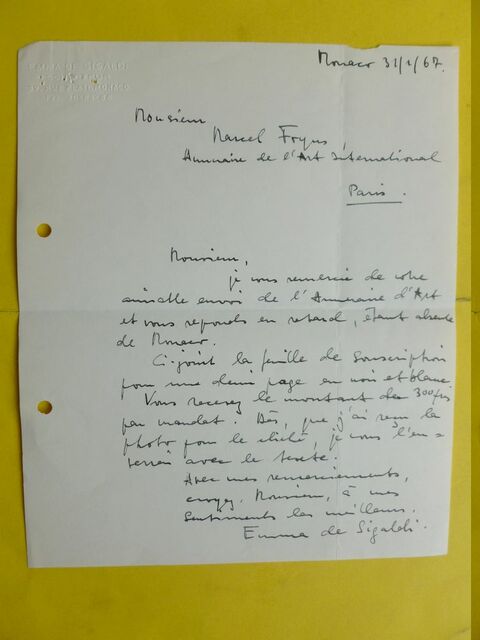 EMMA DE SIGALDI
Monaco 31/1/67.
Monsieur
Marcel Fryns,
Annuaire de l'Art International
Paris.
Monsieur,
je vous remercie de votre
aimable envoi de l'Annuaire d'Art
et vous reponds en retard, étant absente
de Monaco.
Ci-joint la feuille de souscription
pour une demi page en noir et blanc.
Vous recevez le montant des 300 frs
par mandat. Dès, que j'ai reçu la
photo pour le cliché, je vous l'en=
verrai avec le texte.
Avec mes remerciements,
croyez, Monsieur, à mes
sentiments les meilleurs.
Emma de Sigaldi.